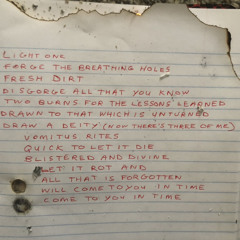 LIGHT ONE
FORGE THE BREATHING HOLES
FRESH DIRT
DISGORGE ALL THAT YOU KNOW
TWO BURNS FOR THE LESSONS LEARNED
DRAWN TO THAT WHICH IS UNTURNED
DRAW A DEITY (NOW THERE'S THREE OF ME)
VOMITUS RITES
QUICK TO LET IT DIE
BLISTERED AND DIVINE
LET IT ROT AND
ALL THAT IS FORGOTTEN
WILL COME TO YOU IN TIME
COME TO YOU IN TIME